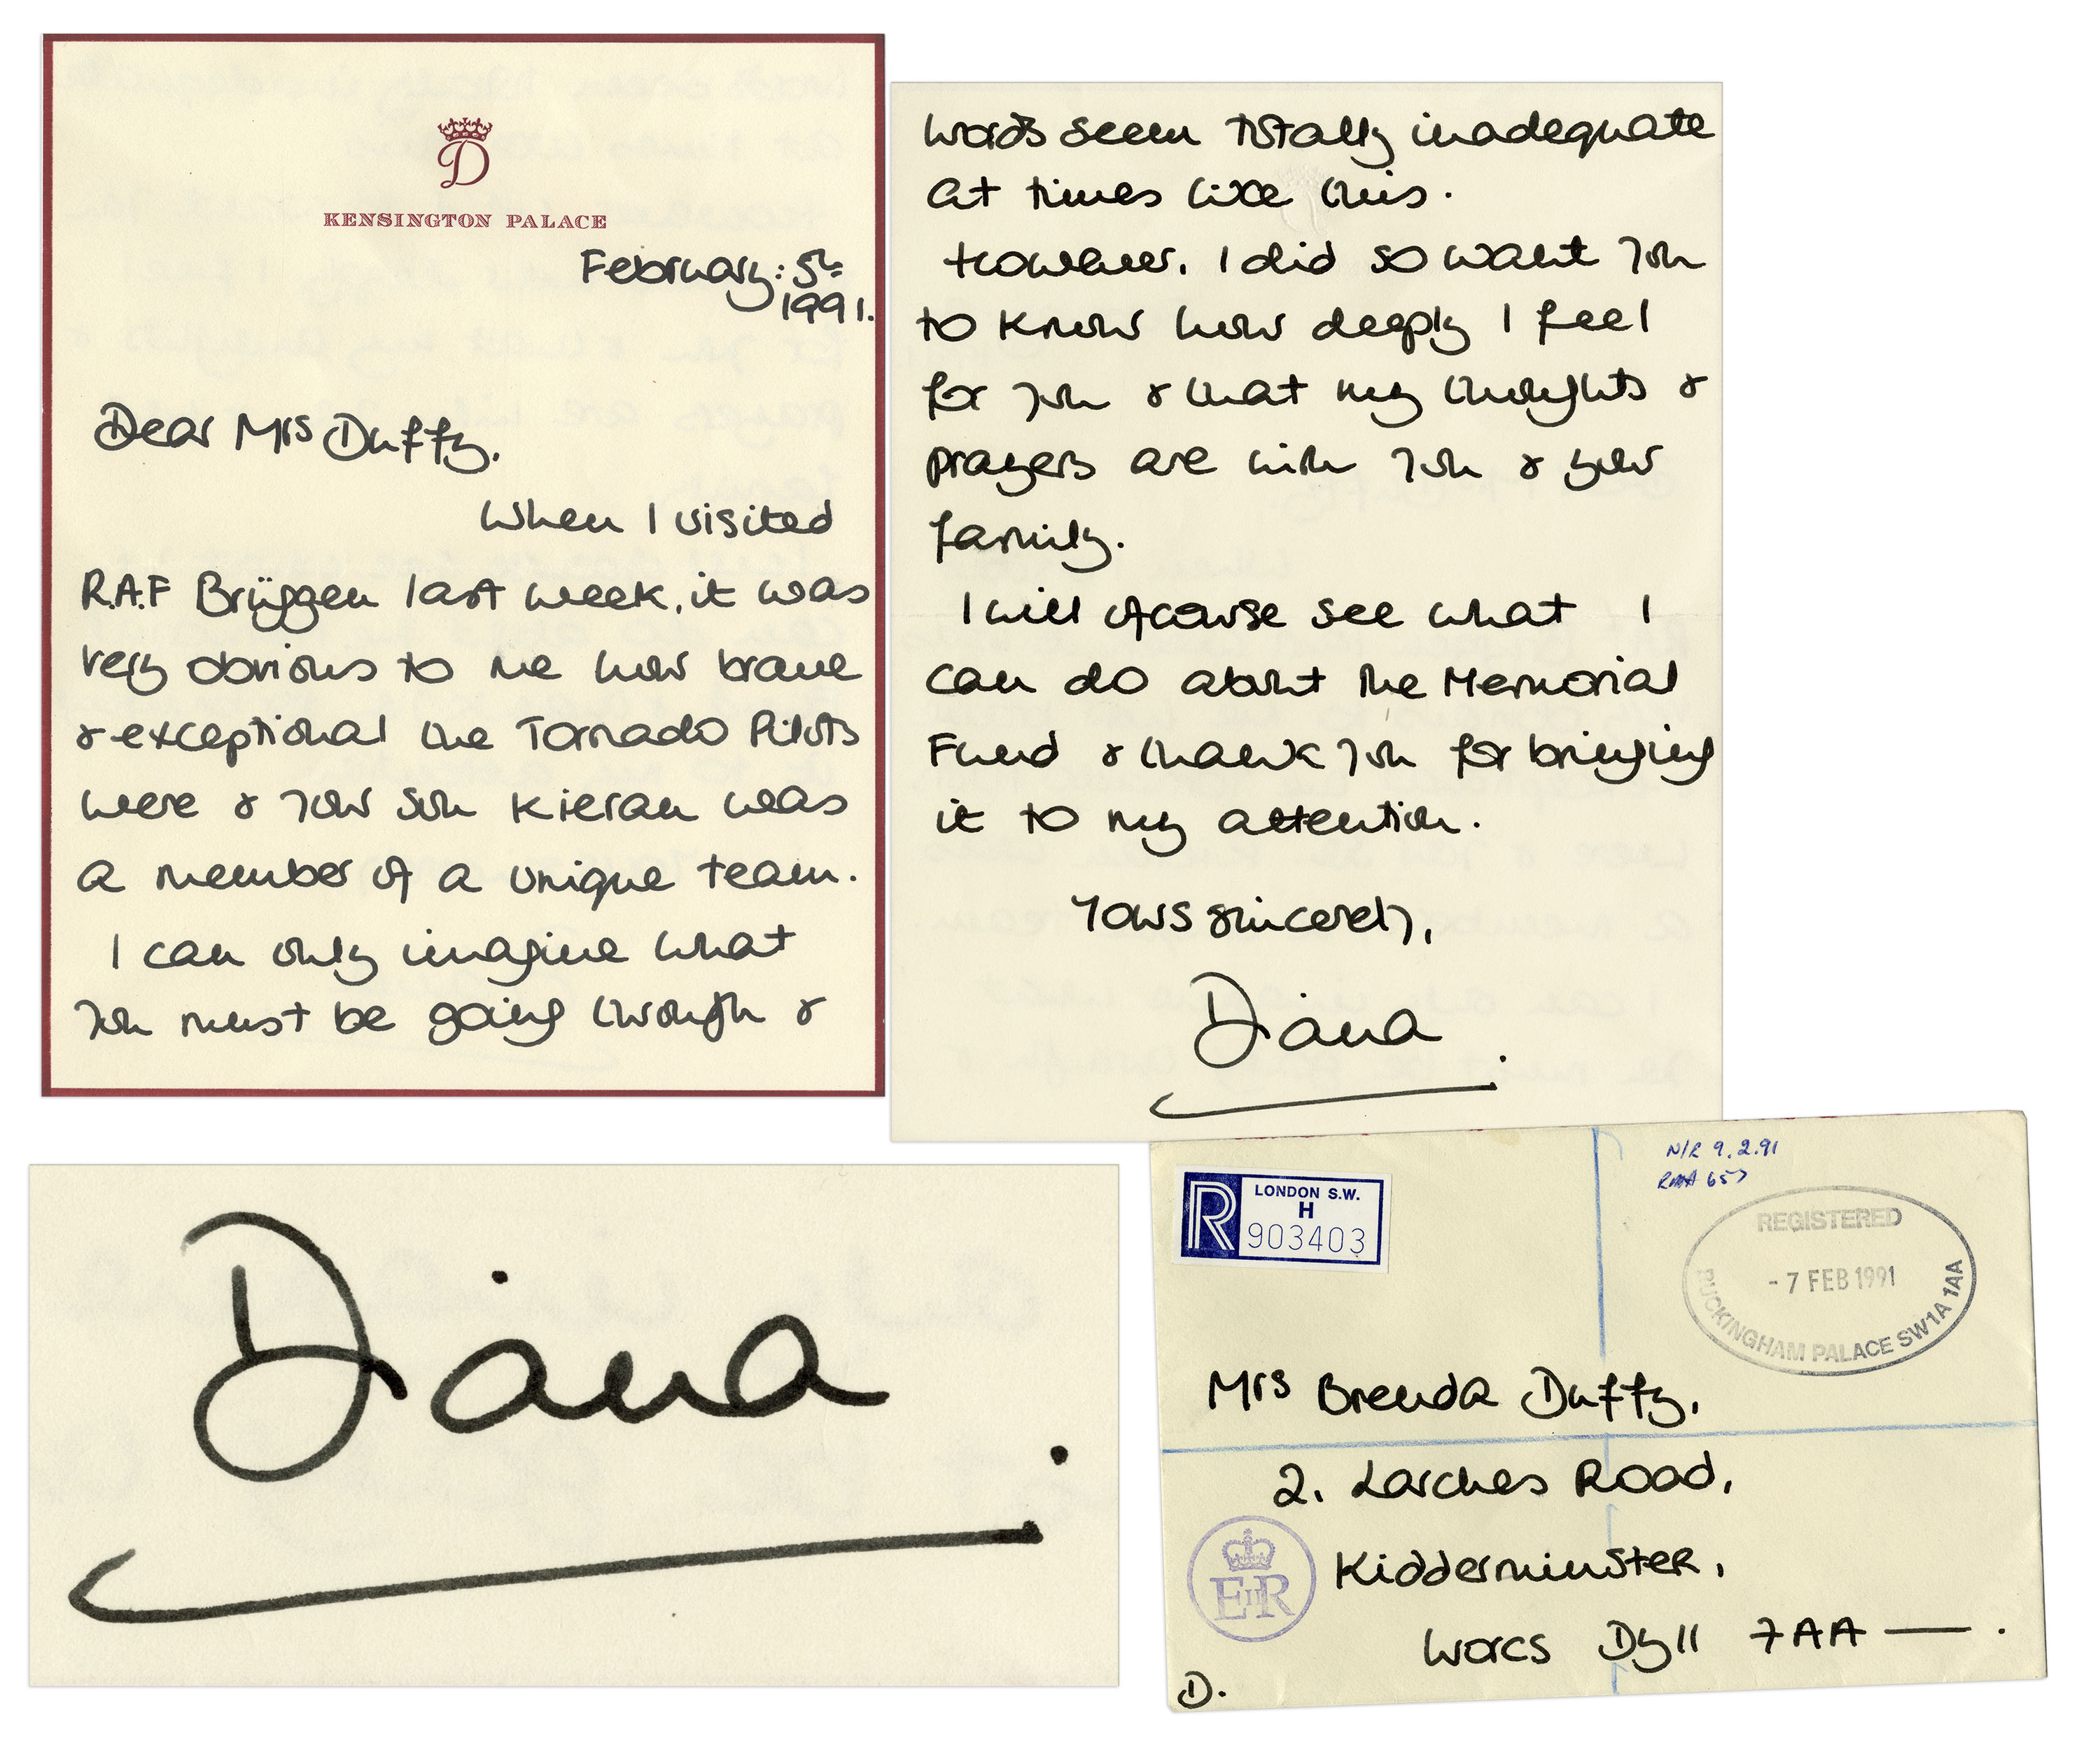 D
KENSINGTON PALACE
February: 5th
1991.
Dear Mrs Duffy.
When I visited
R.A.F Brüggen last week, it was
very obvious to me how brave
& exceptional the Tornado Pilots
were & your son Kieran was
a member of a unique team.
I can only imagine what
you must be going through &
words seem totally inadequate
at times like this.
However, I did so want you
to know how deeply I feel
for you & that my thoughts &
prayers are with you & your
family.
I will ofcourse see what I
can do about the Memorial
Fund & thank you for bringing
it to my attention.
Yours sincerely,
Diana.
Diana.
R
LONDON S.W.
H
903403
N/R 9.2.91
657
REGISTERED
- 7 FEB 1991
BUCKINGHAM PALACE SW1A 1AA
Mrs Brenda Duffy,
2. Larches Road,
Kidderminster,
Worcs Dy11 7AA — .
EIIR
D.